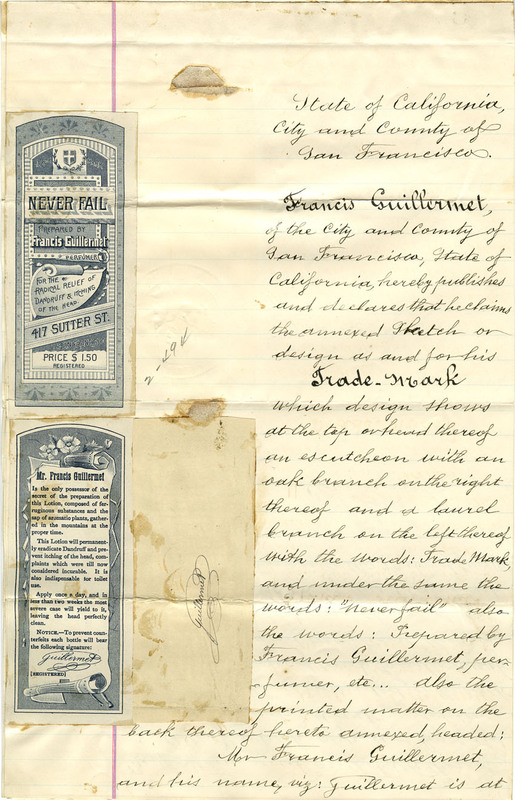 State of California,
City and County of
San Francisco.
Francis Guillermet,
of the City and County of
San Francisco, State of
California, hereby publishes
and declares that he claims
the annexed Sketch or
design as and for his
Trade-Mark
which design shows
at the top or head thereof
an escutcheon with an
oak branch on the right
thereof and a laurel
branch on the left thereof
with the words: Trade Mark,
and under the same the
words: "Never fail" also
the words: Prepared by
Francis Guillermet, per-
fumer, etc... also the
printed matter on the
back thereof hereto annexed, headed:
Mr Francis Guillermet,
and his name, viz: Guillermet is at
NEVER FAIL
PREPARED BY
Francis Guillermet
PERFUMER
FOR THE
RADICAL RELIEF OF
DANDRUFF & ITCHING
OF THE HEAD.
417 SUTTER ST.
PRICE $ 1.50
REGISTERED
Mr. Francis Guillermet
Is the only possessor of the
secret of the preparation of
this Lotion, composed of fer-
ruginous substances and the
sap of aromatic plants, gather-
ed in the mountains at the
proper time.
This Lotion will permanent-
ly eradicate Dandruff and pre-
vent itching of the head, com-
plaints which were till now
considered incurable. It is
also indispensable for toilet
use.
Apply once a day, and in
less than two weeks the most
severe case will yield to it,
leaving the head perfectly
clean.
NOTICE.—To prevent coun-
terfeits each bottle will bear
the following signature:
Guillermet
[REGISTERED]
Guillermet